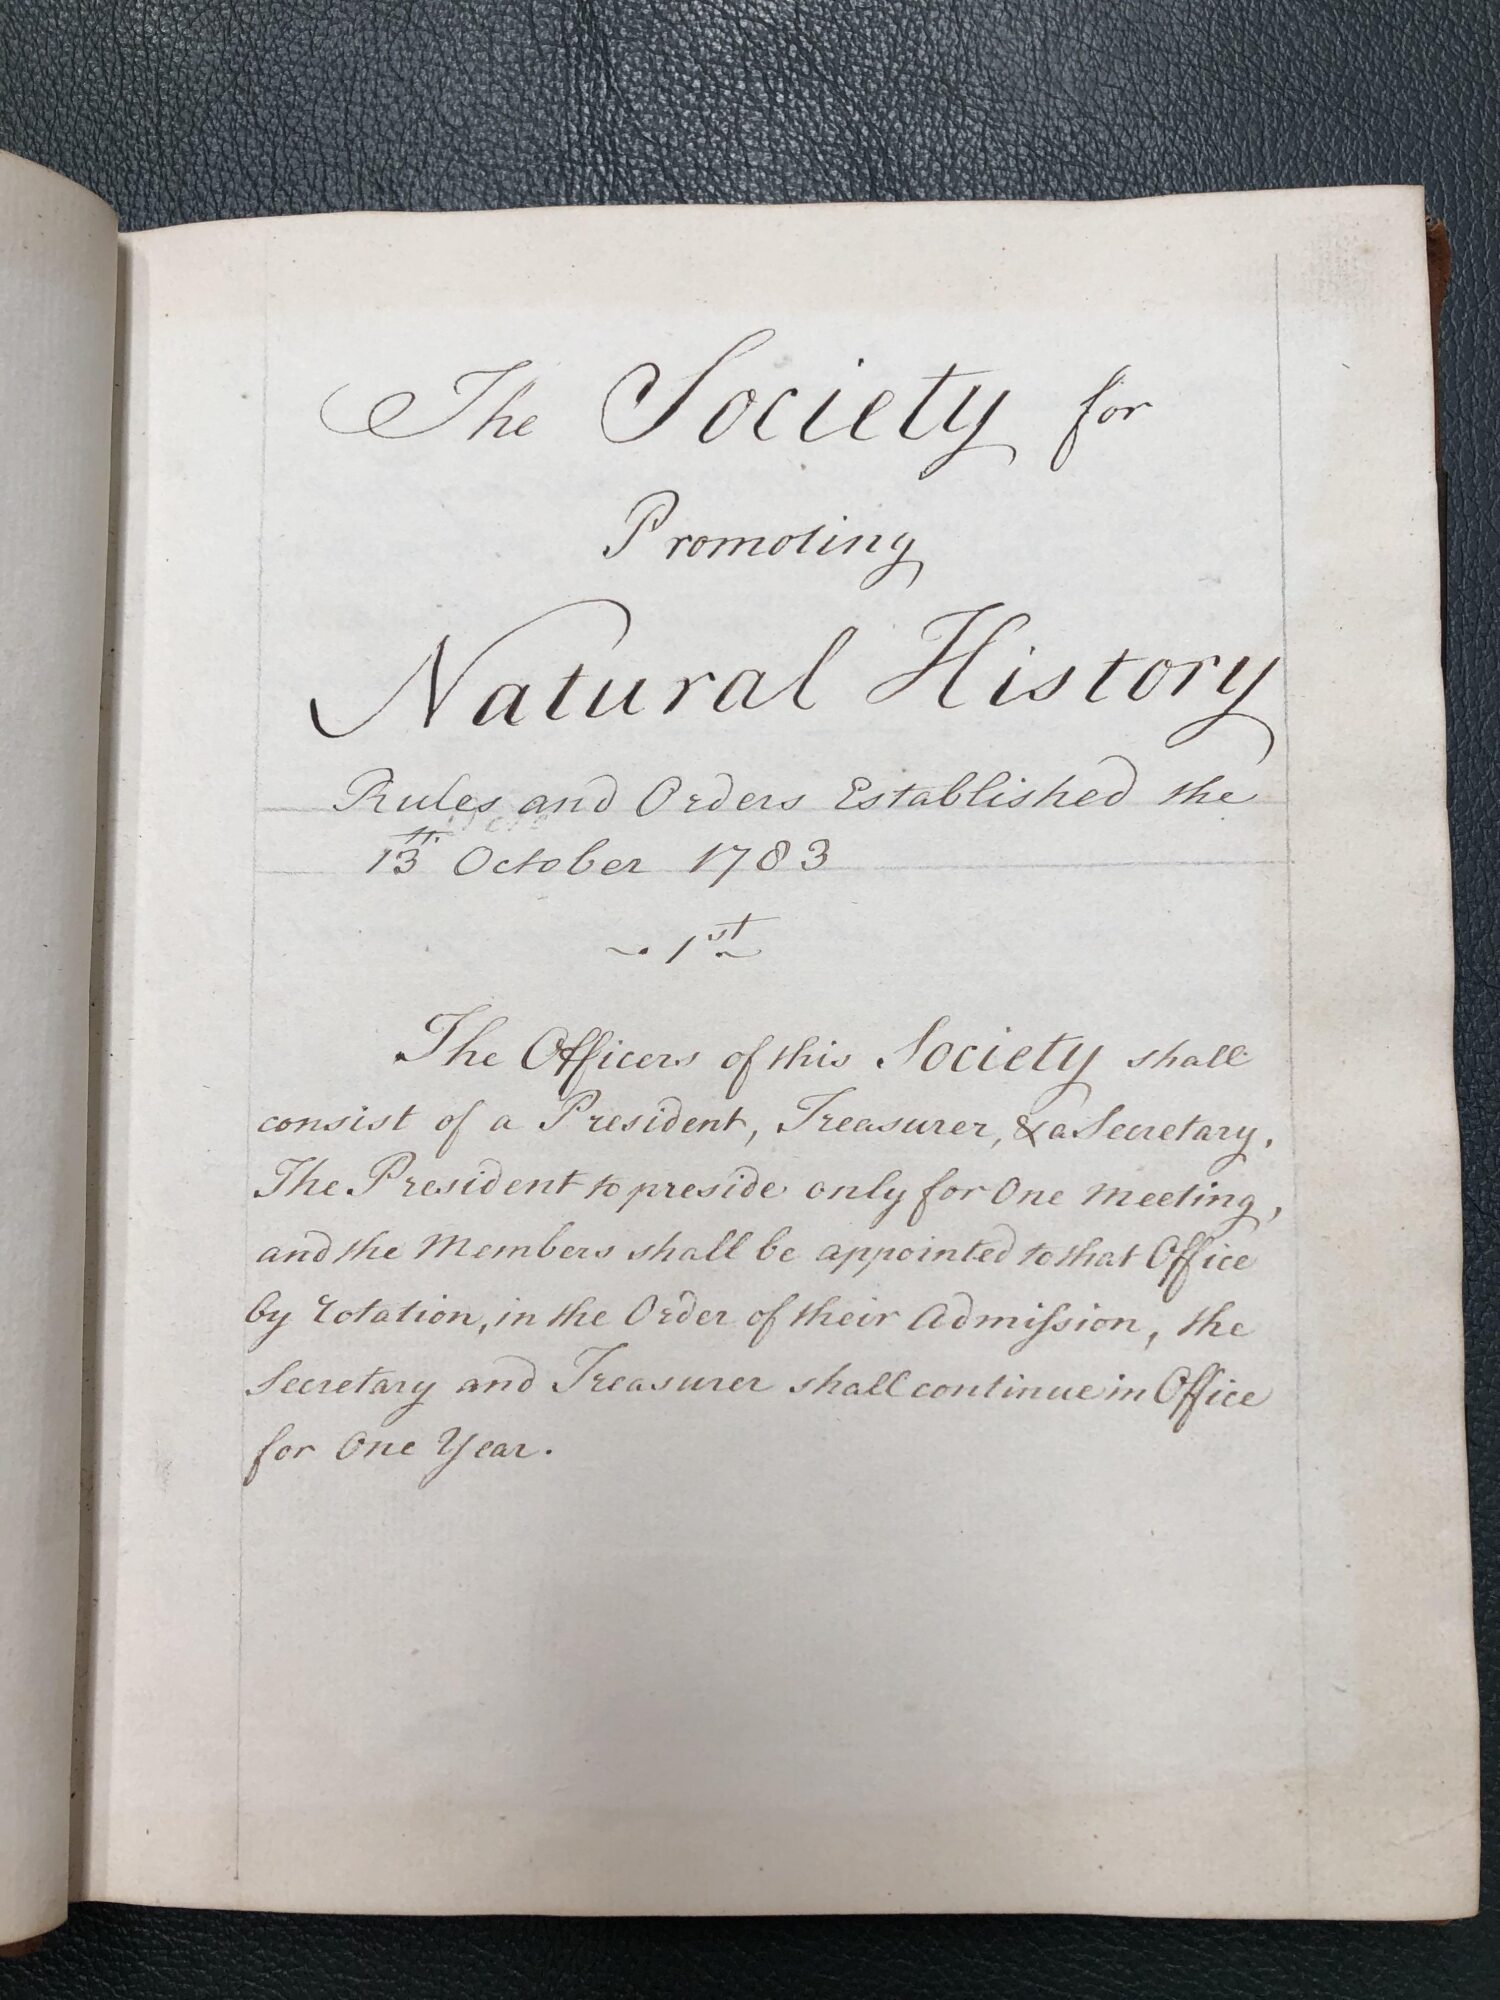 The Society for
Promoting
Natural History
Rules and Orders Established the
13th. October 1783
~. 1st .~
The Officers of this Society shall
consist of a President, Treasurer, & a Secretary.
The President to preside only for One Meeting,
and the Members shall be appointed to that Office
by rotation, in the Order of their Admiſsion, the
Secretary and Treasurer shall continue in Office
for One Year.